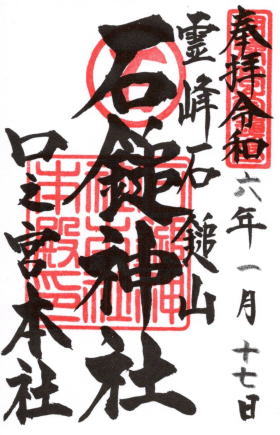 奉拝令和六年一月十七日
霊峰石鎚山
石鎚神社
口之宮本社